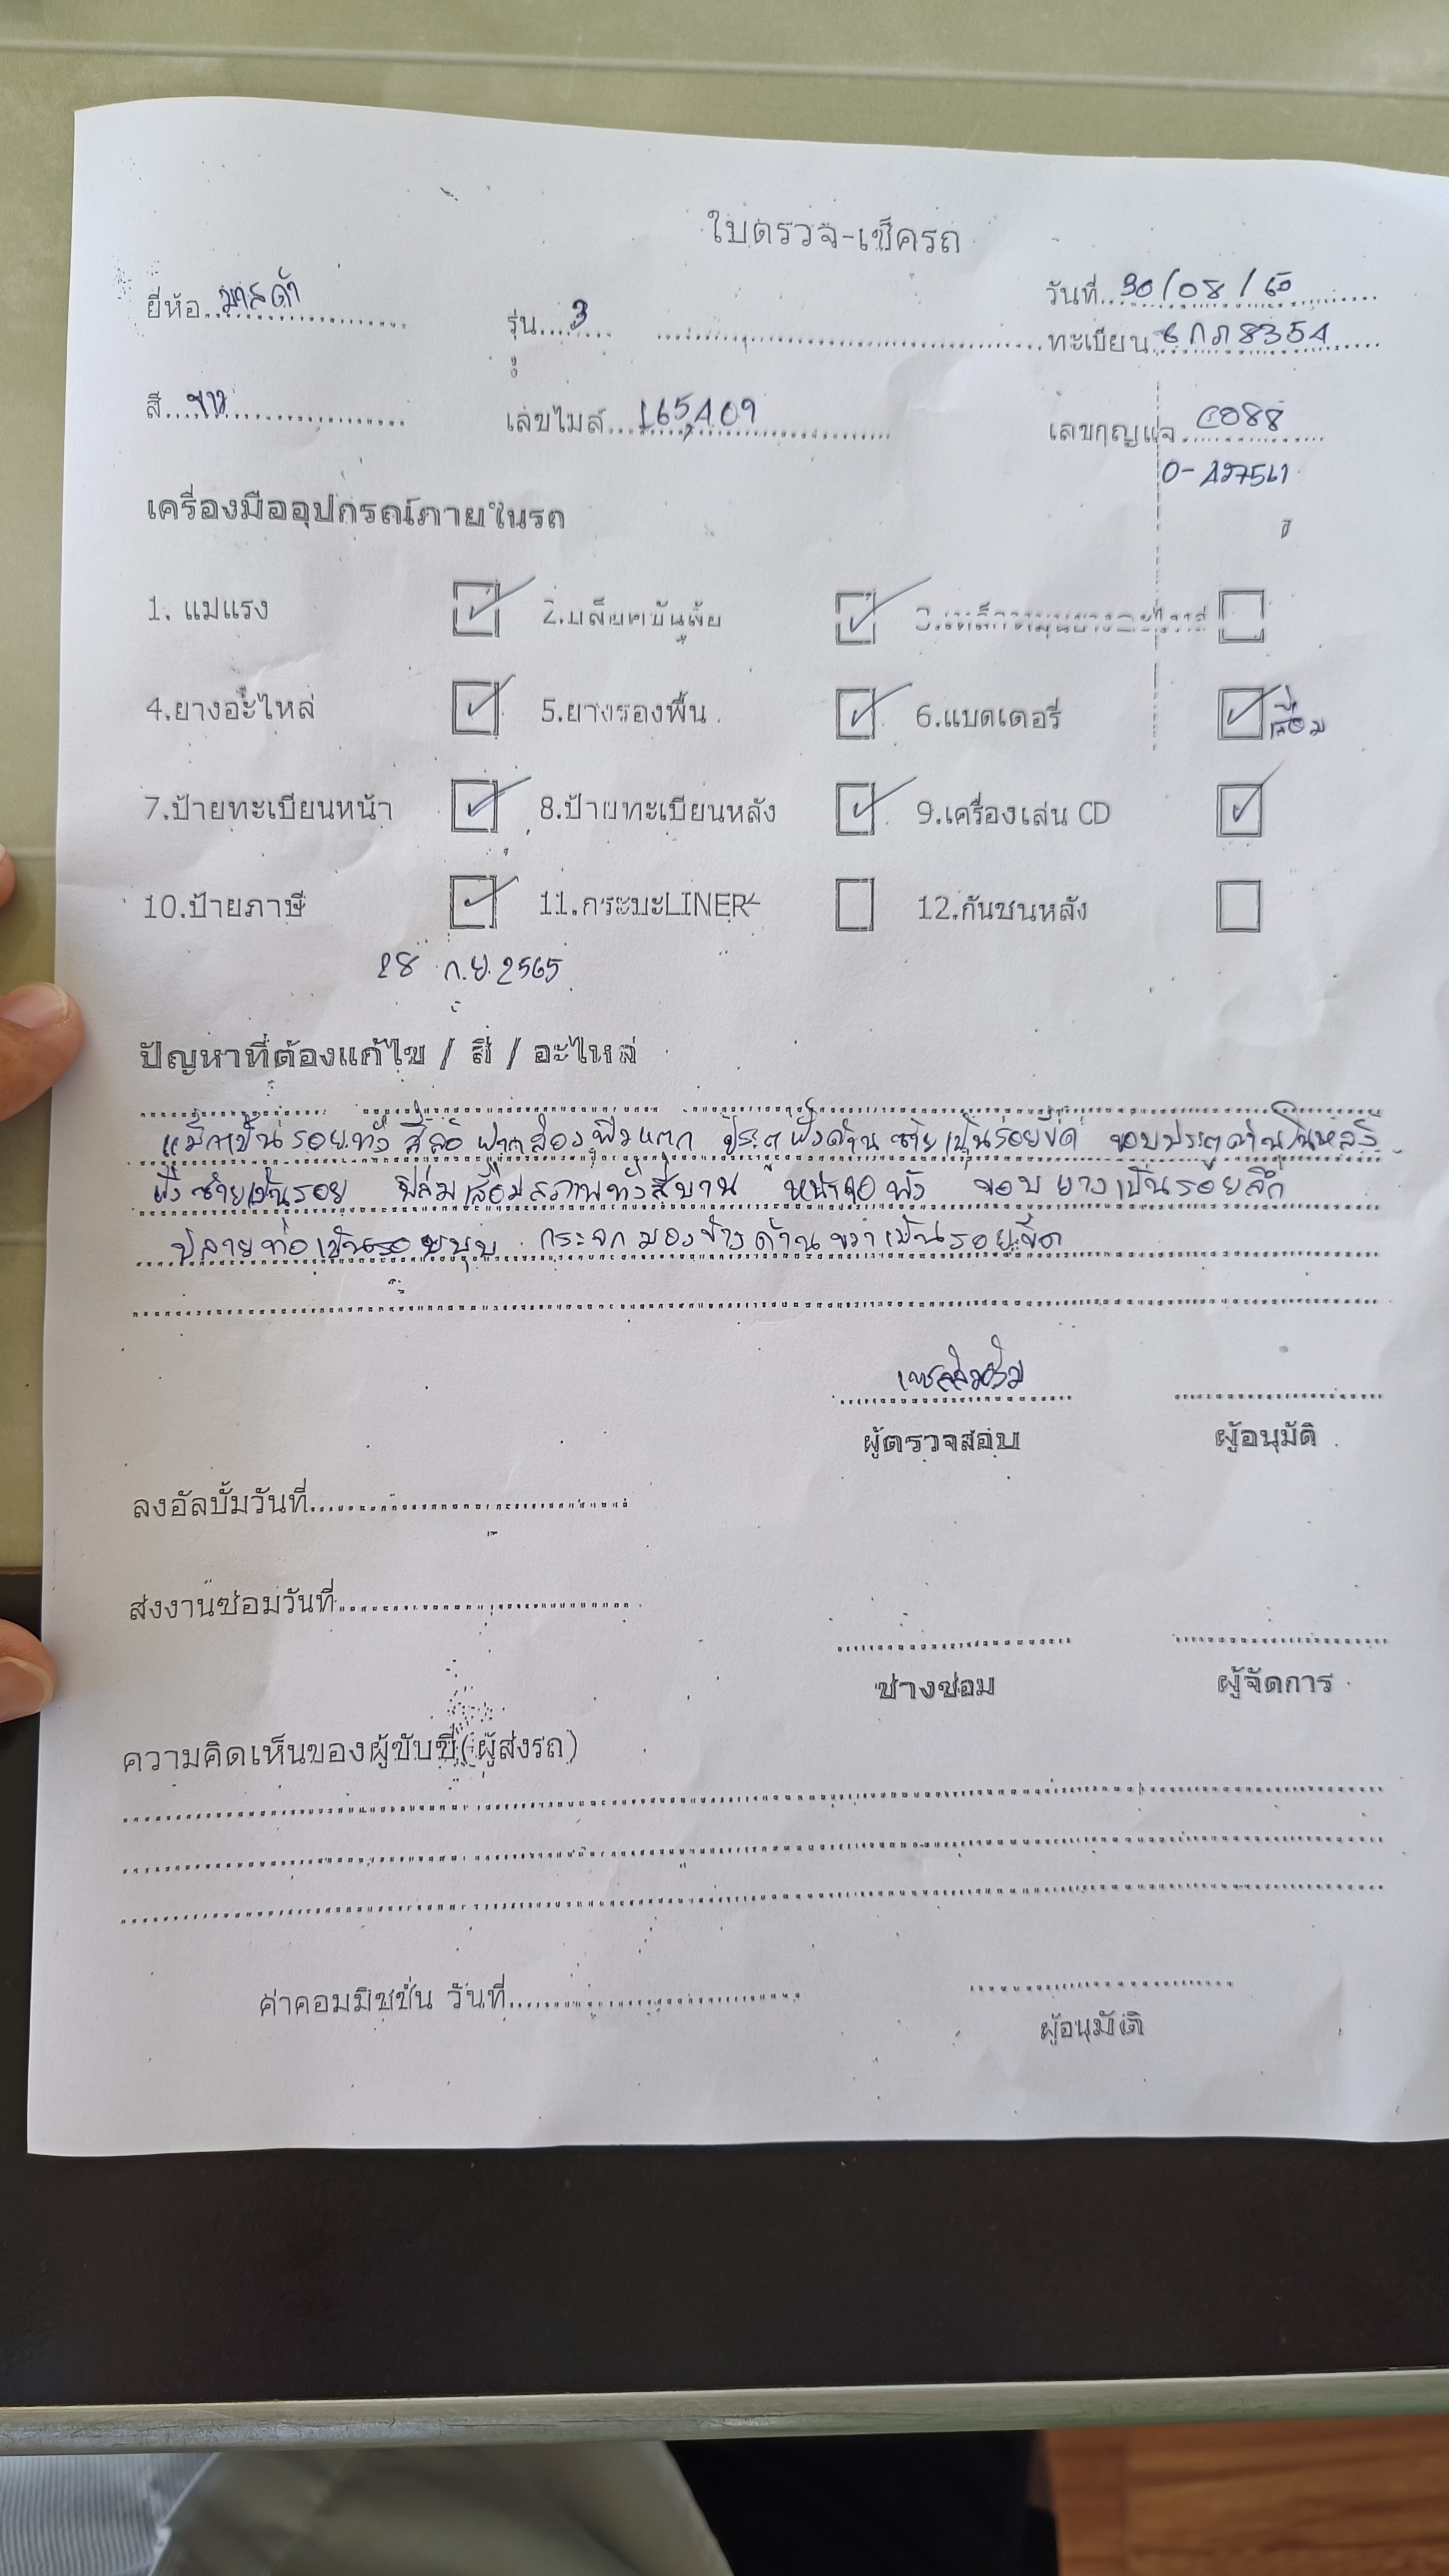 ใบตรวจ-เช็ครถ
ยี่ห้อ มาสด้า รุ่น 3 วันที่ 30/08/65
ทะเบียน 6กภ 8354
สี เทา เลขไมล์ 165,409 เลขกุญแจ C088
เครื่องมืออุปกรณ์ภายในรถ
1. แม่แรง 2.บล็อคขันล้อ
4.ยางอะไหล่ 5.ยางรองพื้น 6.แบตเตอรี่ เสื่อม
7.ป้ายทะเบียนหน้า 8.ป้ายทะเบียนหลัง 9.เครื่องเล่น CD
10.ป้ายภาษี 11.กระบะLINER 12.กันชนหลัง
28 ก.ย. 2565
ปัญหาที่ต้องแก้ไข / สี / อะไหล่
แม็กเป็นรอยทั้งสี่ล้อ แตก ประตูฝั่งด้านซ้ายเป็นรอยขีด ขอบประตูด้านในหลัง
ฝั่งซ้ายเป็นรอย ฟิล์มเสื่อมสภาพทั้งสี่บาน หน้าจอพัง ขอบยางเป็นรอยลึก
ปลายท่อเป็นรอยบุบ กระจกมองข้างด้านขวาเป็นรอยขีด
ผู้ตรวจสอบ ผู้อนุมัติ
ลงอัลบั้มวันที่
ส่งงานซ่อมวันที่
ช่างซ่อม ผู้จัดการ
ความคิดเห็นของผู้ขับขี่(ผู้ส่งรถ)
ค่าคอมมิชชั่น วันที่
ผู้อนุมัติ